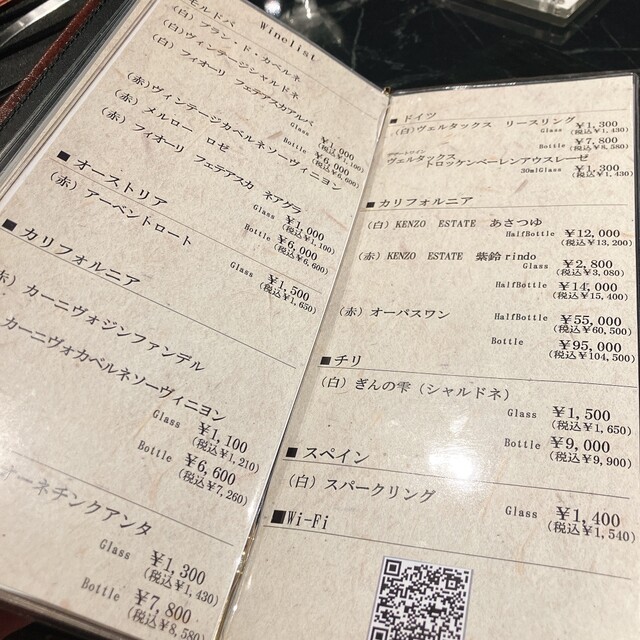 モルドバ Winelist
(白) ブラン・ド・カベルネ
(白) ヴィンテージシャルドネ
(白) フィオーリ フェテアスカアルバ
Glass ¥1,000
(税込¥1,100)
Bottle ¥6,000
(税込¥6,600)
(赤) ヴィンテージカベルネソーヴィニヨン
(赤) メルロー ロゼ
(赤) フィオーリ フェテアスカ ネアグラ
Glass ¥1,000
(税込¥1,100)
Bottle ¥6,000
(税込¥6,600)
■ オーストリア
(赤) アーベントロート
Glass ¥1,500
(税込¥1,650)
■ カリフォルニア
(赤) カーニヴォジンファンデル
カーニヴォカベルネソーヴィニヨン
Glass ¥1,100
(税込¥1,210)
Bottle ¥6,600
(税込¥7,260)
オーネチンクアンタ
Glass ¥1,300
(税込¥1,430)
Bottle ¥7,800
(税込¥8,580)
■ ドイツ
(白) ヴェルタックス リースリング
Glass ¥1,300
(税込¥1,430)
Bottle ¥7,800
(税込¥8,580)
ヴェルタックス
トロッケンベーレンアウスレーゼ
30mlGlass ¥1,300
(税込¥1,430)
■ カリフォルニア
(白) KENZO ESTATE あさつゆ
HalfBottle ¥12,000
(税込¥13,200)
(赤) KENZO ESTATE 紫鈴 rindo
Glass ¥2,800
(税込¥3,080)
HalfBottle ¥14,000
(税込¥15,400)
(赤) オーパスワン HalfBottle ¥55,000
(税込¥60,500)
Bottle ¥95,000
(税込¥104,500)
■ チリ
(白) ぎんの雫 (シャルドネ)
Glass ¥1,500
(税込¥1,650)
Bottle ¥9,000
(税込¥9,900)
■ スペイン
(白) スパークリング
Glass ¥1,400
(税込¥1,540)
■Wi-Fi